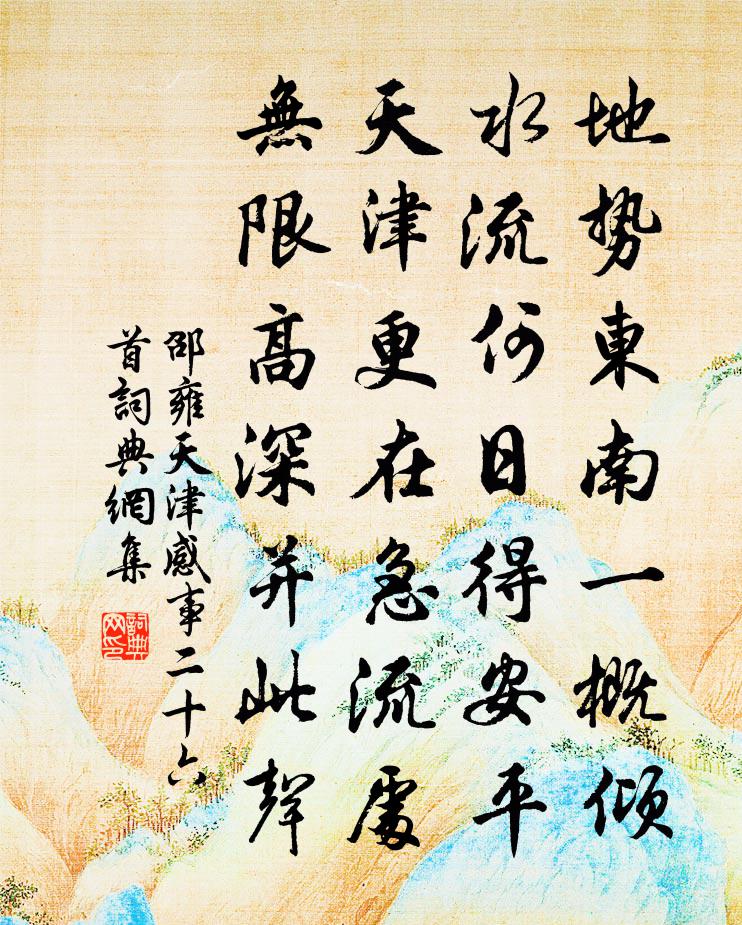 地勢東南一概傾
水流何日得安平
天津更在急流處
無限高深并此聲
邵雍天津感事二十六
首詞典網集
詞典
网印